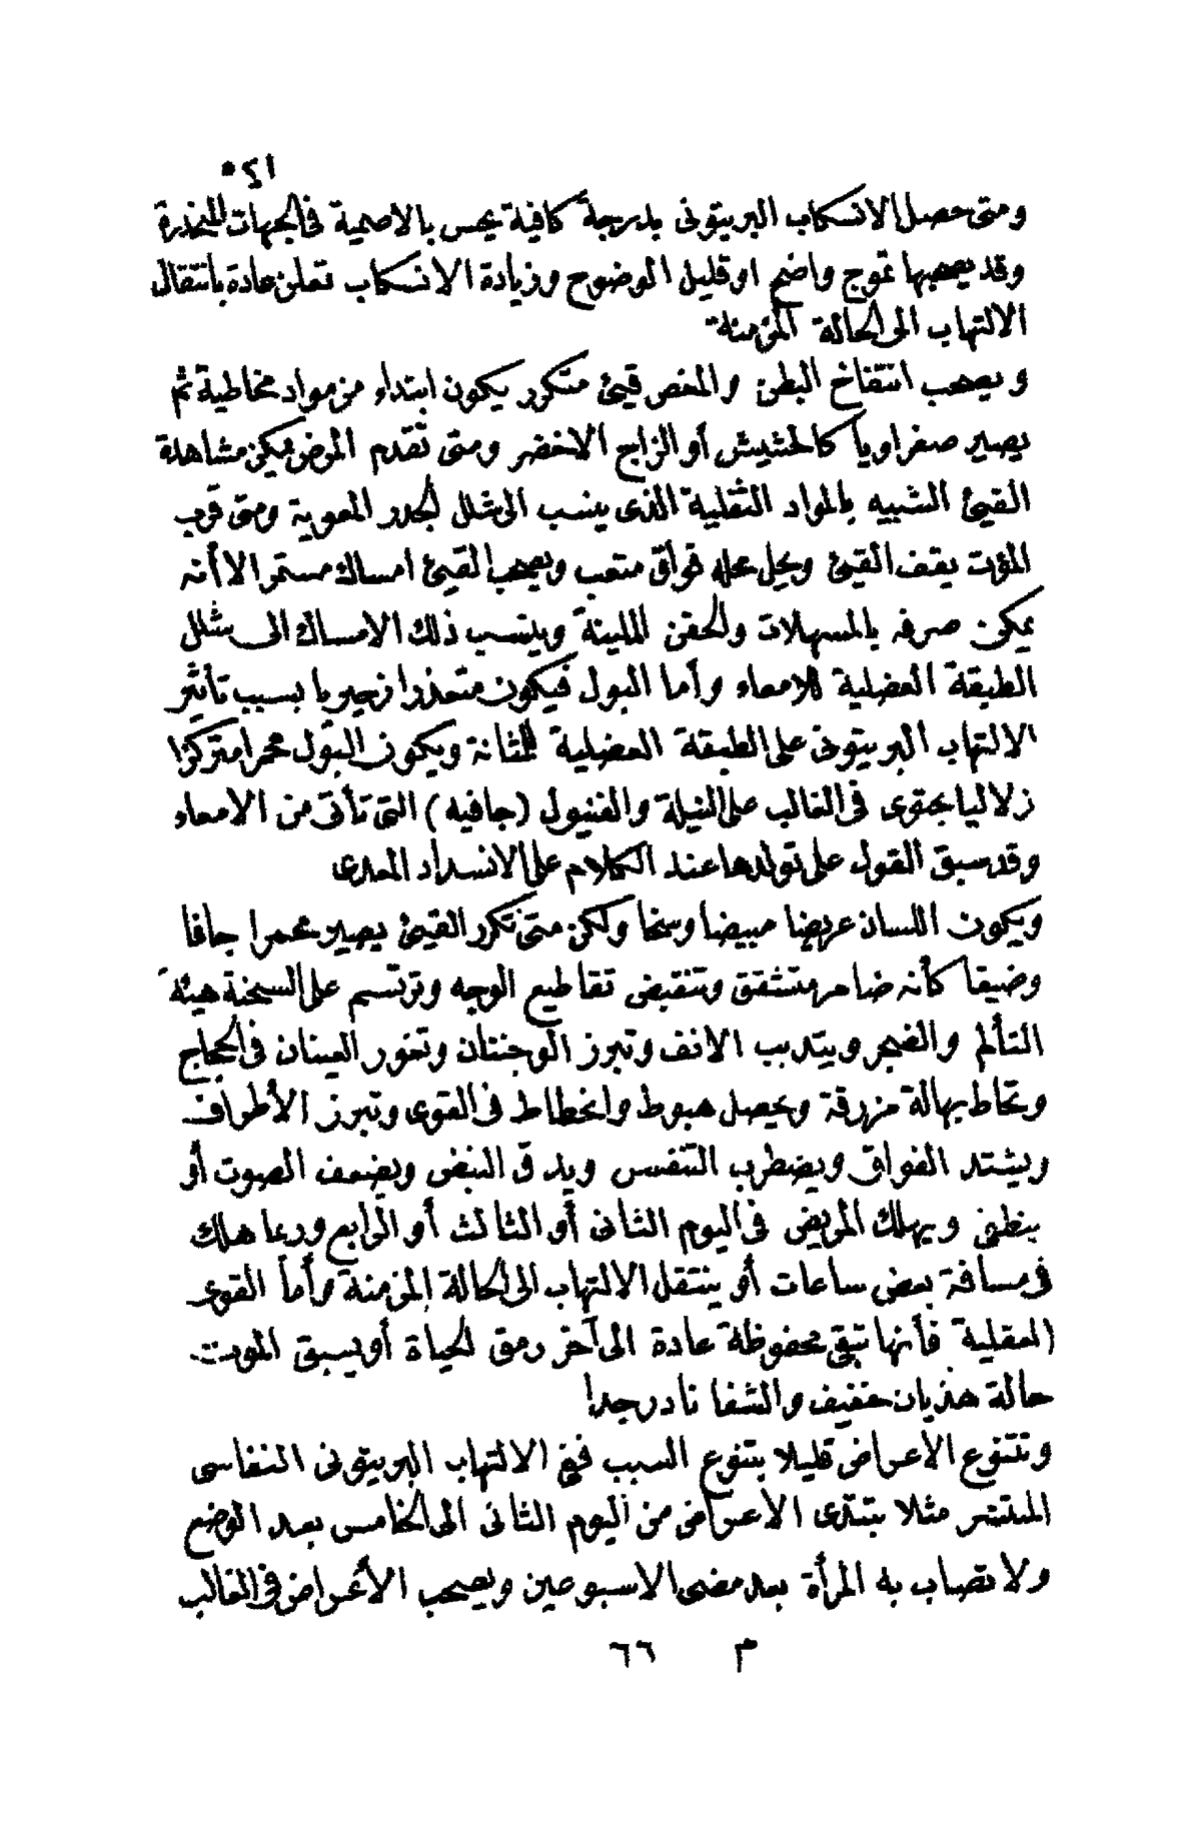 ٥٢١
ومتى حصل الانسكاب البريتونى بدرجة كافية يحس بالاصمية فى الجهات المنحدرة
وقد يصحبها تموج واضح او قليل الوضوح وزيادة الانسكاب تعلن عادة بانتقال
الالتهاب الى الحالة المزمنة
ويصحب انتفاخ البطن والمغص قيئ متكرر يكون ابتداء من مواد مخاطية ثم
يصير صفراويا كالحشيش أو الزاج الاخضر ومتى تقدم المرض يمكن مشاهدة
القيئ الشبيه بالمواد الثفلية الذى ينسب الى شلل الجدر المعوية ومتى قرب
الموت يقف القيئ ويحل محله فواق متعب ويصحب القيئ امساك مستمر الا أنه
يمكن صرفه بالمسهلات والحقن الملينة وينسب ذلك الامساك الى شلل
الطبقة العضلية للامعاء وأما البول فيكون متعذرا زحيريا بسبب تأثير
الالتهاب البريتونى على الطبقة العضلية للمثانة ويكون البول محمرا متركزا
زلاليا يحتوى فى الغالب على النيلة والفنيول (جافيه) التى تأتى من الامعاء
وقد سبق القول على تولدها عند الكلام على الانسداد المعوى
ويكون اللسان عريضا مبيضا وسخا ولكن متى تكرر القيئ يصير محمرا جافا
وضيقا كأنه ضامر متشقق وتنقبض تقاطيع الوجه وترتسم على السحنة هيئة
التألم والضجر ويتدبب الانف وتبرز الوجنتان وتغور العينان فى الحجاج
وتحاط بهالة مزرقة ويحصل هبوط وانحطاط فى القوى وتبرز الأطراف
ويشتد الفواق ويضطرب التنفس ويدق النبض ويضعف الصوت أو
ينطفئ ويهلك المريض فى اليوم الثانى أو الثالث أو الرابع وربما هلك
فى مسافة بعض ساعات أو ينتقل الالتهاب الى الحالة المزمنة وأما القوى
العقلية فأنها تبقى محفوظة عادة الى آخر رمق الحياة أو يسبق الموت
حالة هذيان خفيف والشفا نادر جدا
وتتنوع الأعراض قليلا بتنوع السبب ففى الالتهاب البريتونى النفاسى
المنتشر مثلا تبتدى الأعراض من اليوم الثانى الى الخامس بعد الوضع
ولا تصاب به المرأة بعد مضى الاسبوعين ويصحب الأعراض فى الغالب
م ٦٦